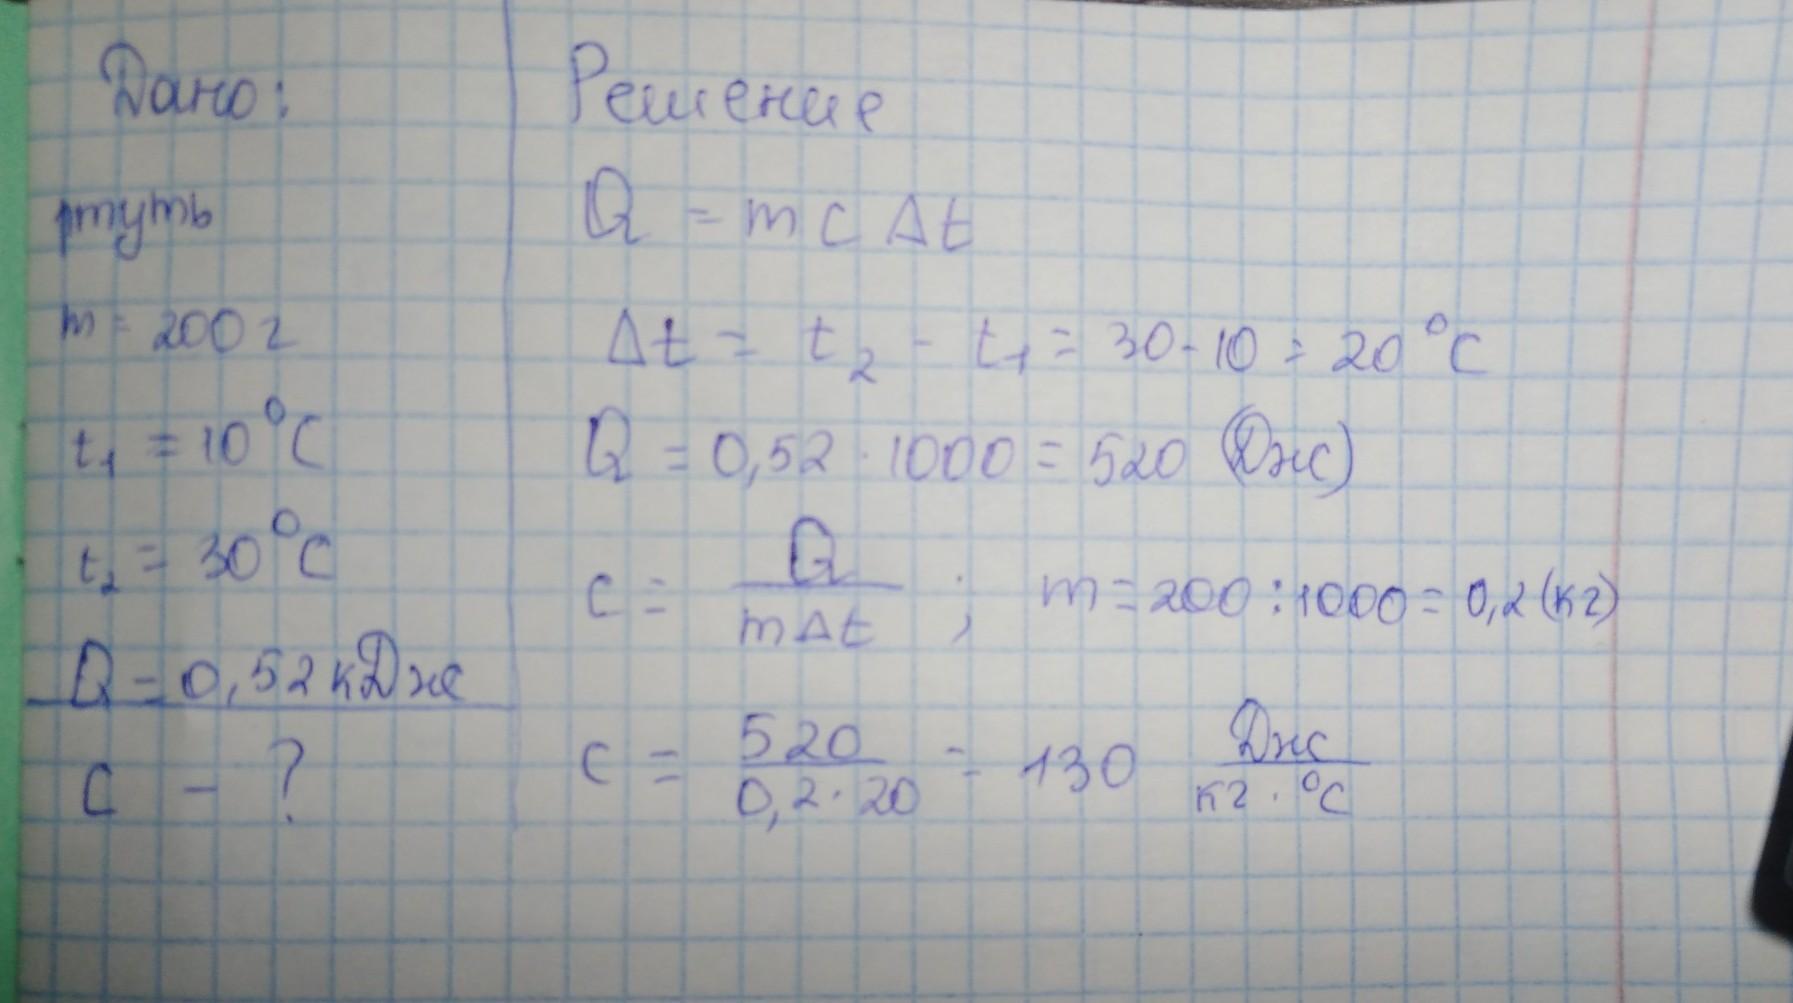 Дано:
ртуть
m = 200 г
t₁ = 10 °C
t₂ = 30 °C
Q = 0,52 кДж
C - ?
Решение
Q = m c Δt
Δt = t₂ - t₁ = 30 - 10 = 20 °C
Q = 0,52 · 1000 = 520 (Дж)
c = Q / mΔt ; m = 200 : 1000 = 0,2 (кг)
c = 520 / 0,2 · 20 = 130 Дж / кг · °C